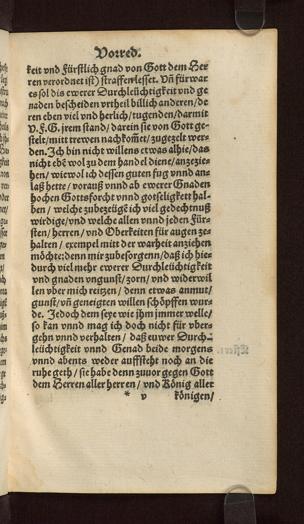 Vorred.
keit vnd Fürstlich gnad von Gott dem Her
ren verordnet ist) straffen lesset. Vn̄ fürwar
es sol dis ewerer Durchleüchtigkeit vnd ge
naden bescheiden vrtheil billich anderen/ de
ren eben viel vnd herlich/ tugenden/ darmit
V. F. G. jrem stand/ darein sie von Gott ge-
stelt/ mitt trewen nachkom̄et/ zugezelt wer-
den. Ich bin nicht willens etwas alhie/ das
nicht ebē wol zu dem handel diene/ anzezie-
hen/ wiewol ich dessen guten fug vnnd ans
laß hette/ vorauß vnnd ab ewerer Gnaden
hochen Gottsforcht vnnd gotseligkeit hal-
ben/ welche zubezeügē ich viel gedechtnuß
wirdige/ vnd welche allen vnnd jeden Für-
sten/ herren/ vnd Oberkeiten für augen ze-
halten/ exempel mitt der warheit anziehen
möchte: denn mir zubesorgenn/ daß ich hie-
durch viel mehr ewerer Durchleüchtigkeit
vnd gnaden vngunst/ zorn/ vnd widerwil
len vber mich reitzen/ denn etwas anmut/
gunst/ vn̄ geneigten willen schöpffen wur-
de. Jedoch dem seye wie jhm jmmer welle/
so kan vnnd mag ich doch nicht für vber-
gehn vnnd verhalten/ daß euwer Durch-
leüchtigkeit vnnd Genad beide morgens
vnnd abents weder auffsteht noch an die
ruhe geth/ sie habe denn zuuor gegen Gott
dem Herren aller herren/ vnd König aller
* v königen/